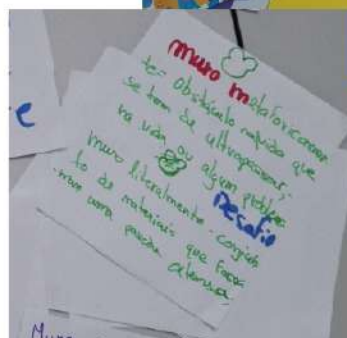 muro metaforicamen-
te- obstáculo na vida que
se tem de ultrapassar,
na vida ou algum problema
Desafio
muro literalmente - conjun
to de materiais que forma
uma parede
e
Muro